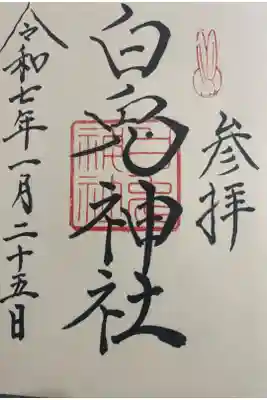 参拝
白兎神社
令和七年一月二十五日